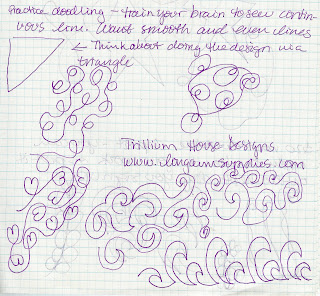 Practice doodling - train your brain to sew contin-
uous line. Want smooth and even lines
← Think about doing the design in a
triangle
Trillium House Designs
www.longarmsupplies.com